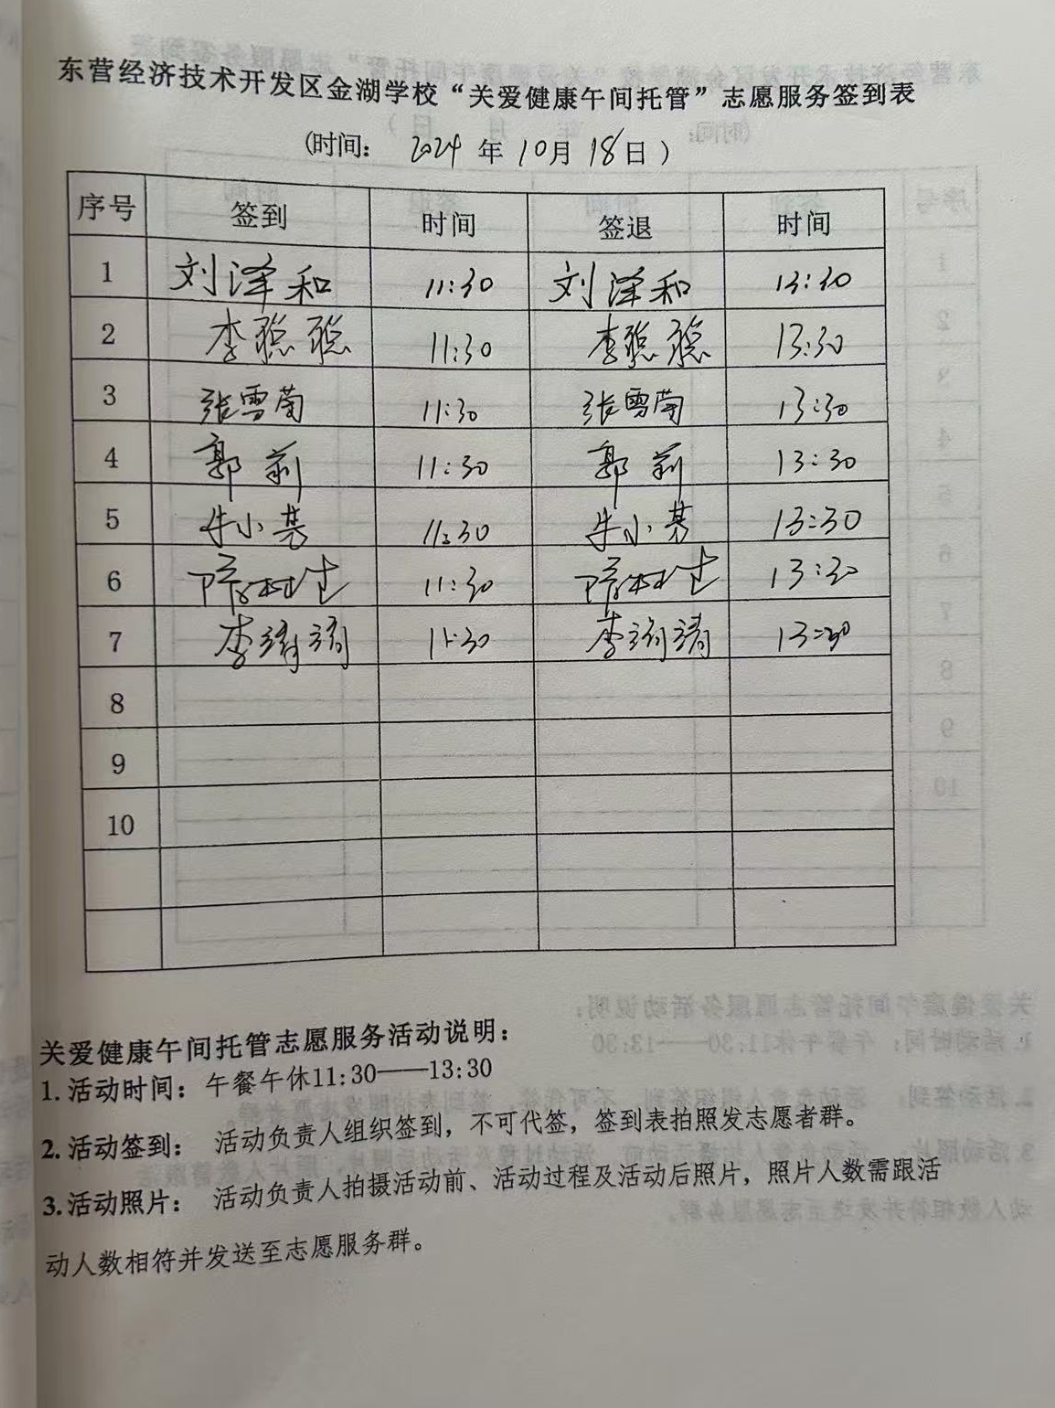 东营经济技术开发区金湖学校“关爱健康午间托管”志愿服务签到表
(时间： 2024 年 10月 18日 )
序号 签到 时间 签退 时间
1 刘泽和 11:30 刘泽和 13:30
2 李聪聪 11:30 李聪聪 13:30
3 张雪菊 11:30 张雪菊 13:30
4 郭莉 11:30 郭莉 13:30
5 牛小 11:30 牛小 13:30
6 11:30 13:30
7 李 11:30 李 13:30
8
9
10
关爱健康午间托管志愿服务活动说明：
1.活动时间：午餐午休11:30——13:30
2.活动签到： 活动负责人组织签到，不可代签，签到表拍照发志愿者群。
3.活动照片： 活动负责人拍摄活动前、活动过程及活动后照片，照片人数需跟活
动人数相符并发送至志愿服务群。